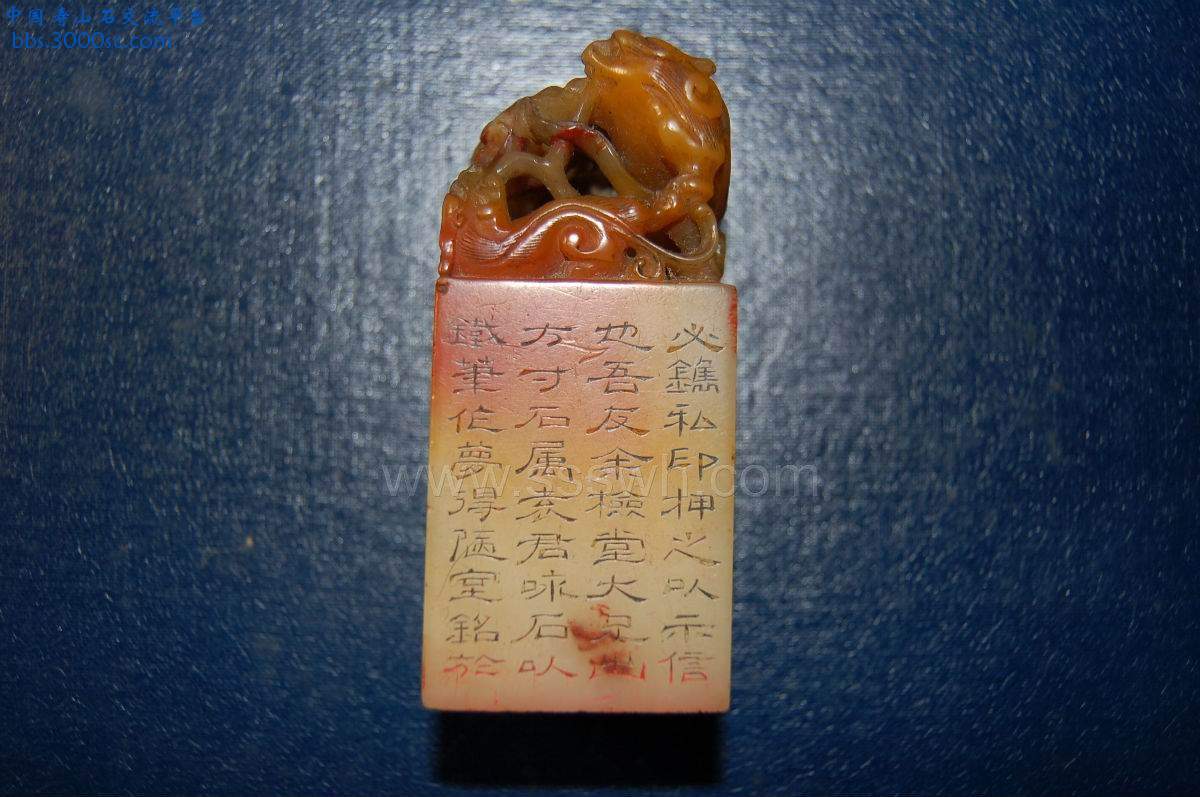 中国寿山石交流平台
bbs.3000sc.com
必鐫私印押之以示信
也吾友余檢堂大兄出
方寸石属袁君咏石以
鐵筆作夢得陋室銘於